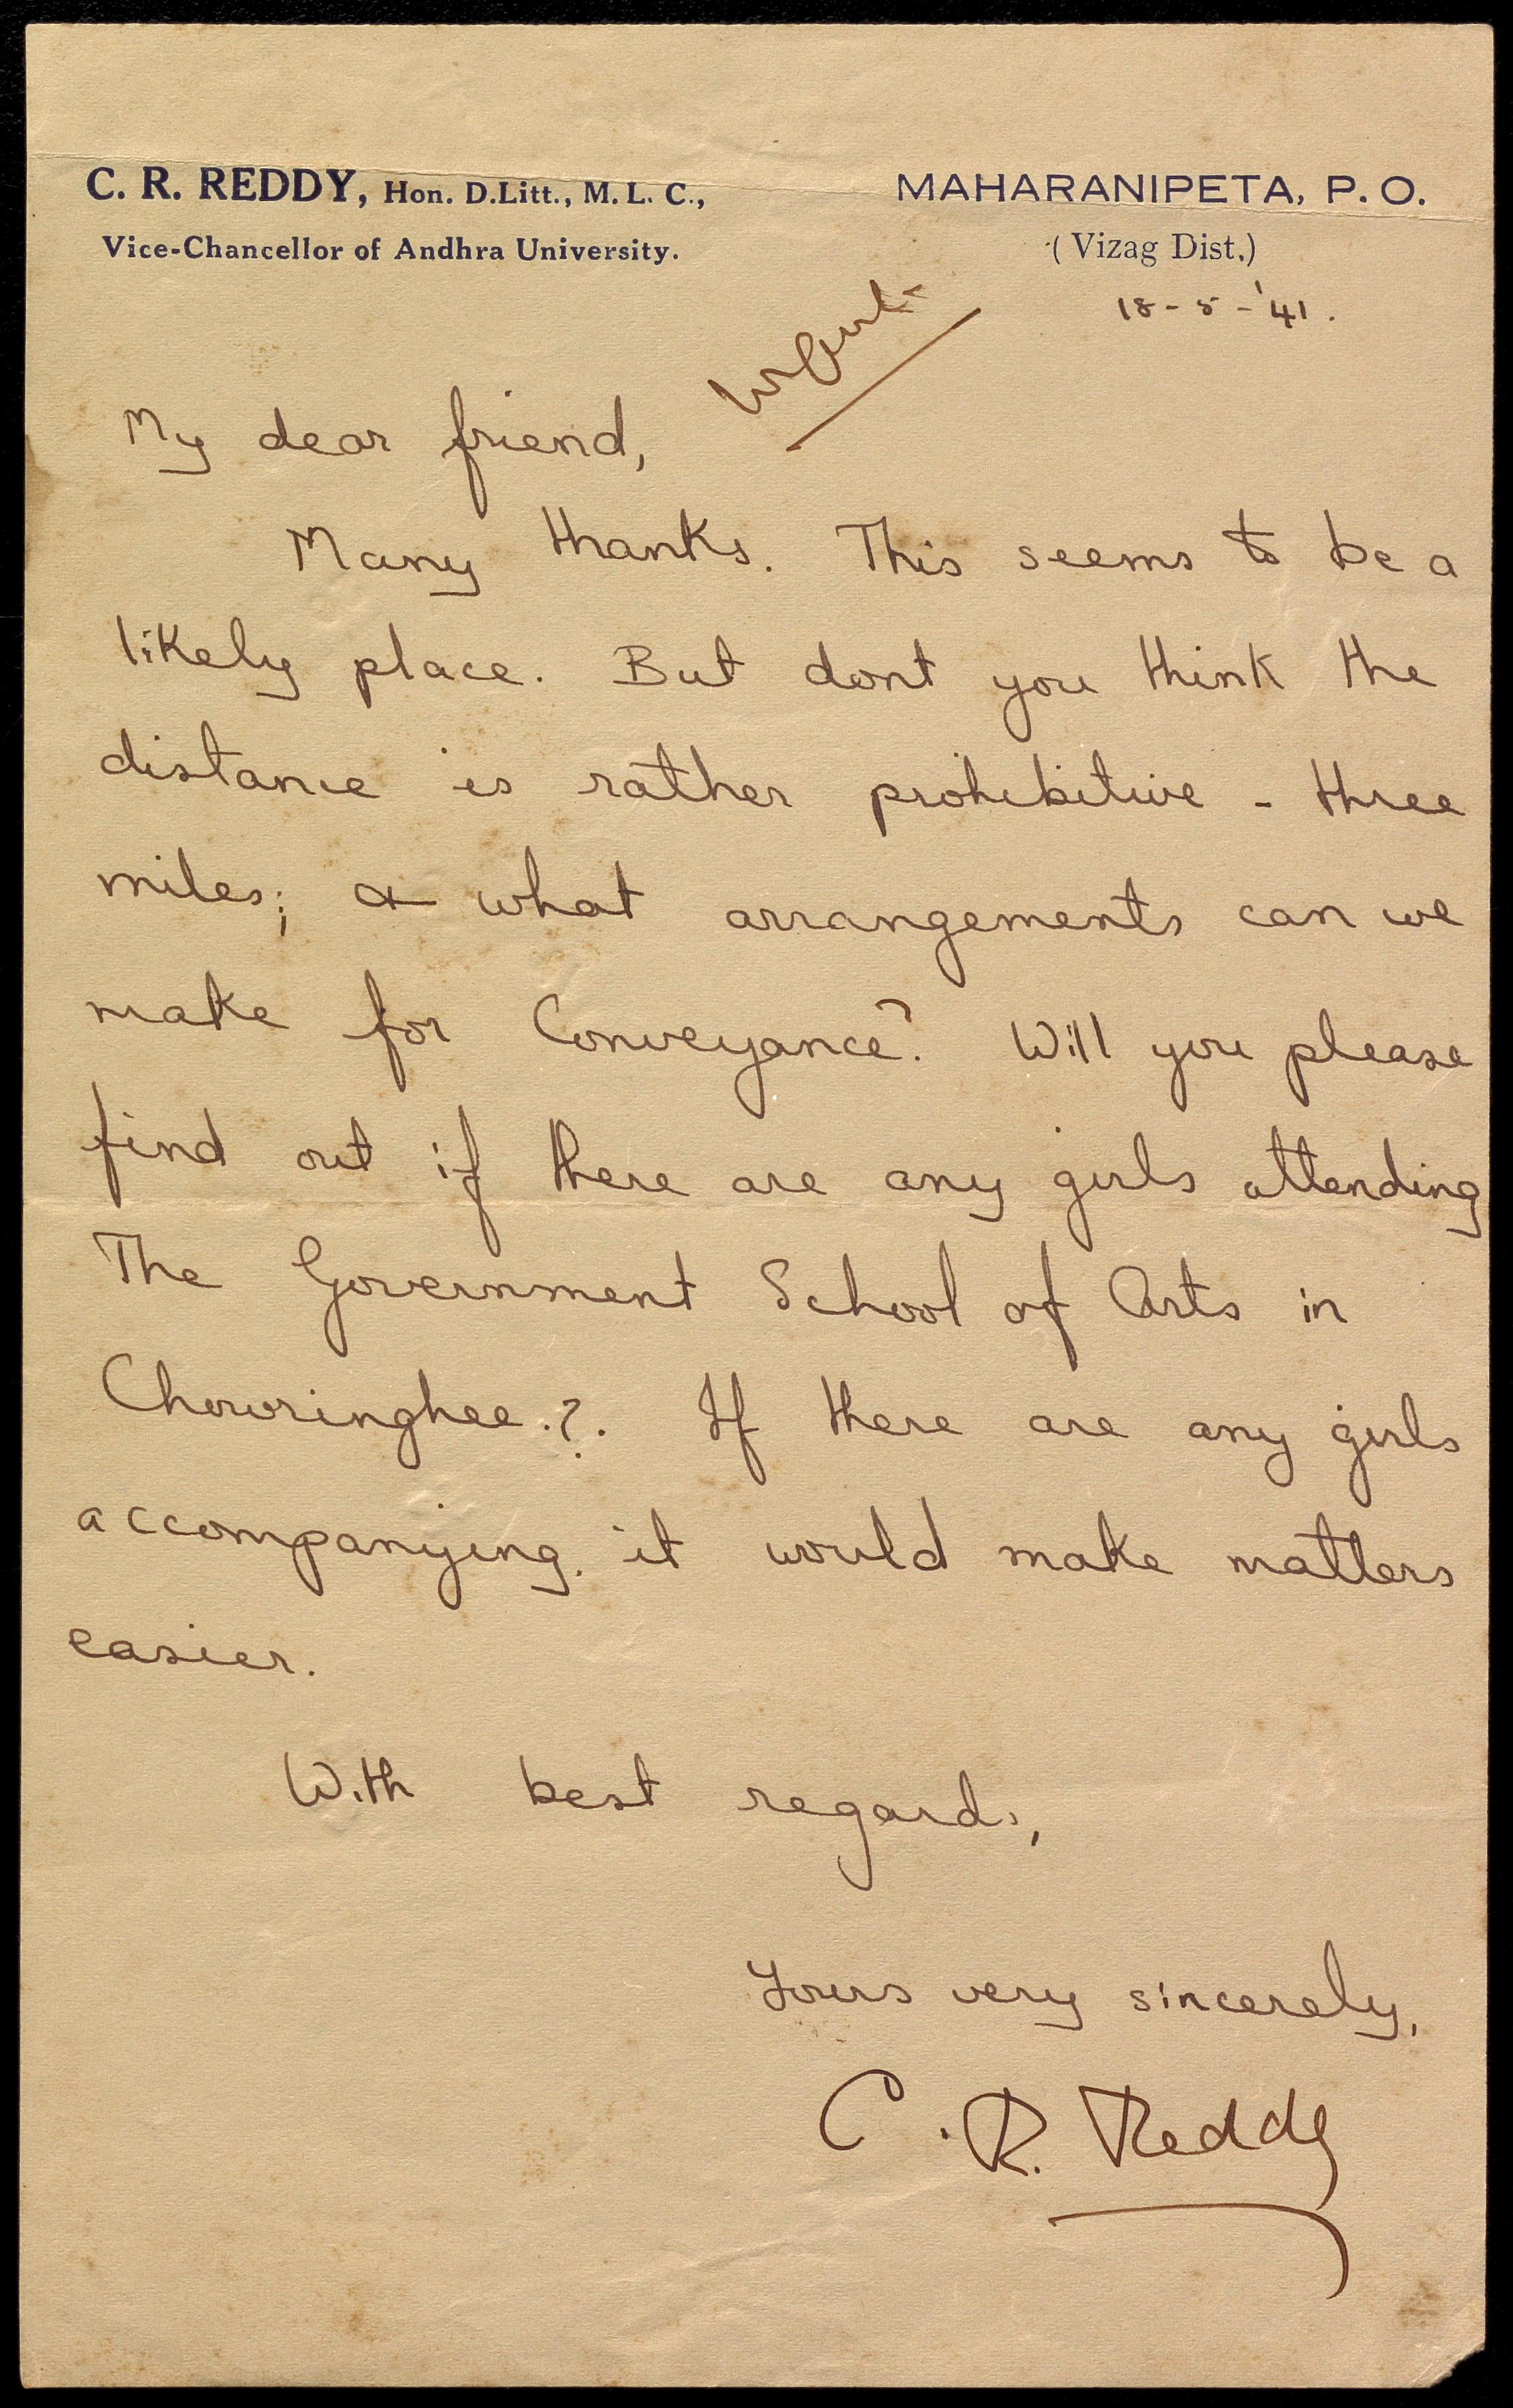 C. R. REDDY, Hon. D.Litt., M. L. C.,
Vice-Chancellor of Andhra University.
MAHARANIPETA, P. O.
( Vizag Dist,)
18-5-'41.
My dear friend,
Many thanks. This seems to be a
likely place. But dont you think the
distance is rather prohibitive - three
miles; & what arrangements can we
make for Conveyance? Will you please
find out if there are any girls attending
The Government School of Arts in
Chowringhee.?. If there are any girls
accompanying, it would make matters
easier.
With best regards,
Yours very sincerely,
C. R. Reddy